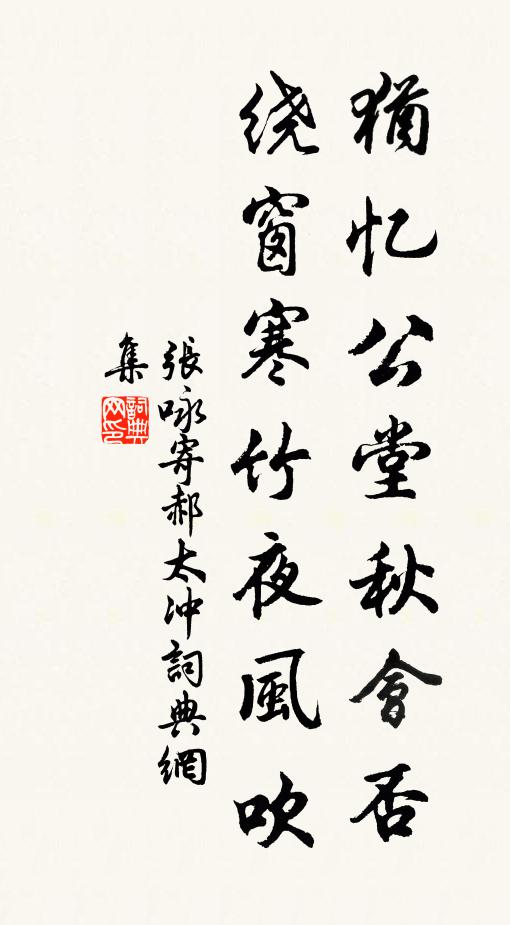 猶忆公堂秋會否
绕窗寒竹夜風吹
張咏寄郝太冲詞典網
集
詞典
网印